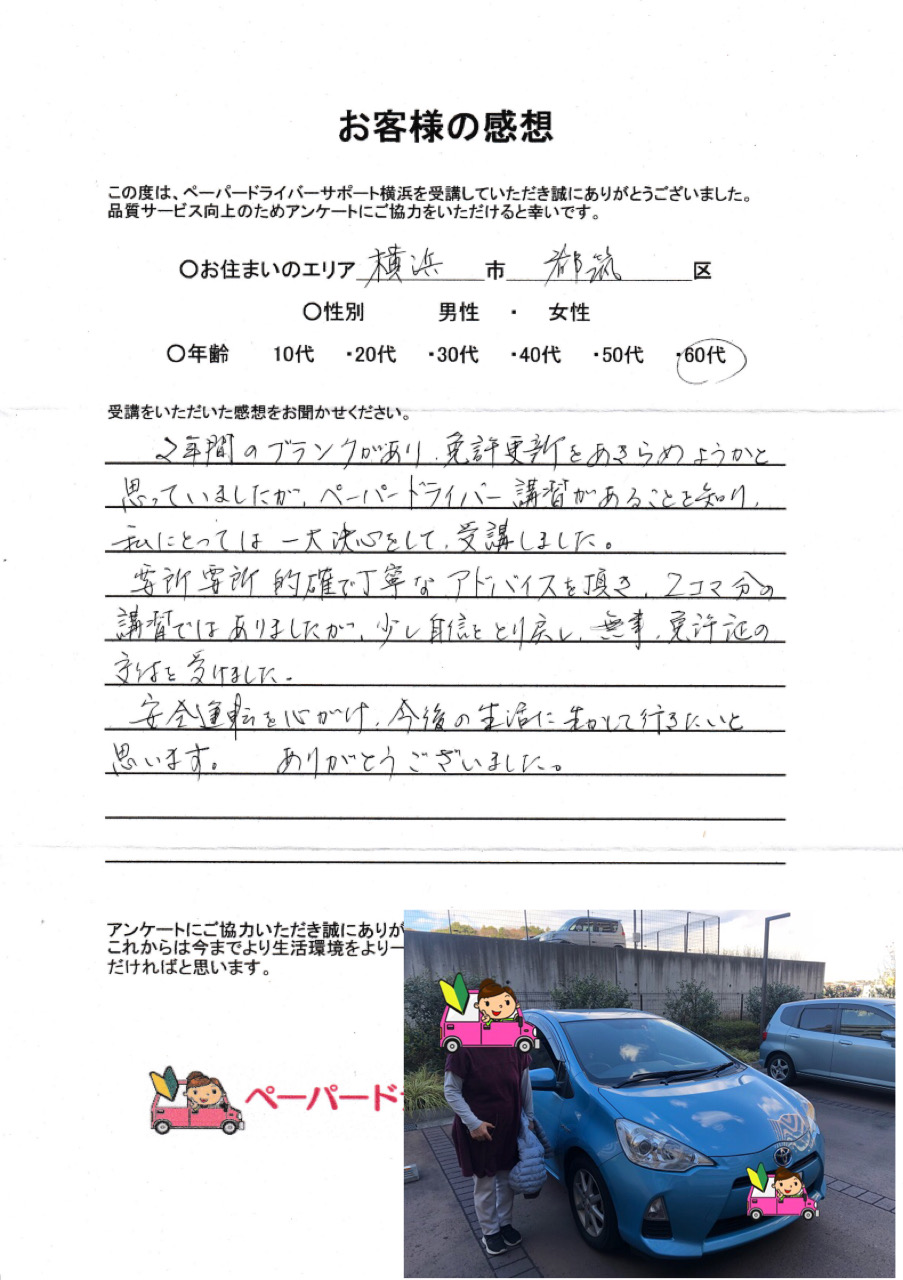 お客様の感想
この度は、ペーパードライバーサポート横浜を受講していただき誠にありがとうございました。
品質サービス向上のためアンケートにご協力をいただけると幸いです。
〇お住まいのエリア 横浜 市 都筑 区
〇性別 男性 ・ 女性
〇年齢 10代 ・20代 ・30代 ・40代 ・50代 ・60代
受講をいただいた感想をお聞かせください。
2年間のブランクがあり、免許更新をあきらめようかと
思っていましたが、ペーパードライバー講習があることを知り、
私にとっては一大決心をして、受講しました。
要所要所的確で丁寧なアドバイスを頂き、2コマ分の
講習ではありましたが、少し自信をとり戻し、無事、免許証の
交付を受けました。
安全運転を心がけ、今後の生活に生かして行きたいと
思います。 ありがとうございました。
アンケートにご協力いただき誠にありが
これからは今までより生活環境をより一
だければと思います。
ペーパード